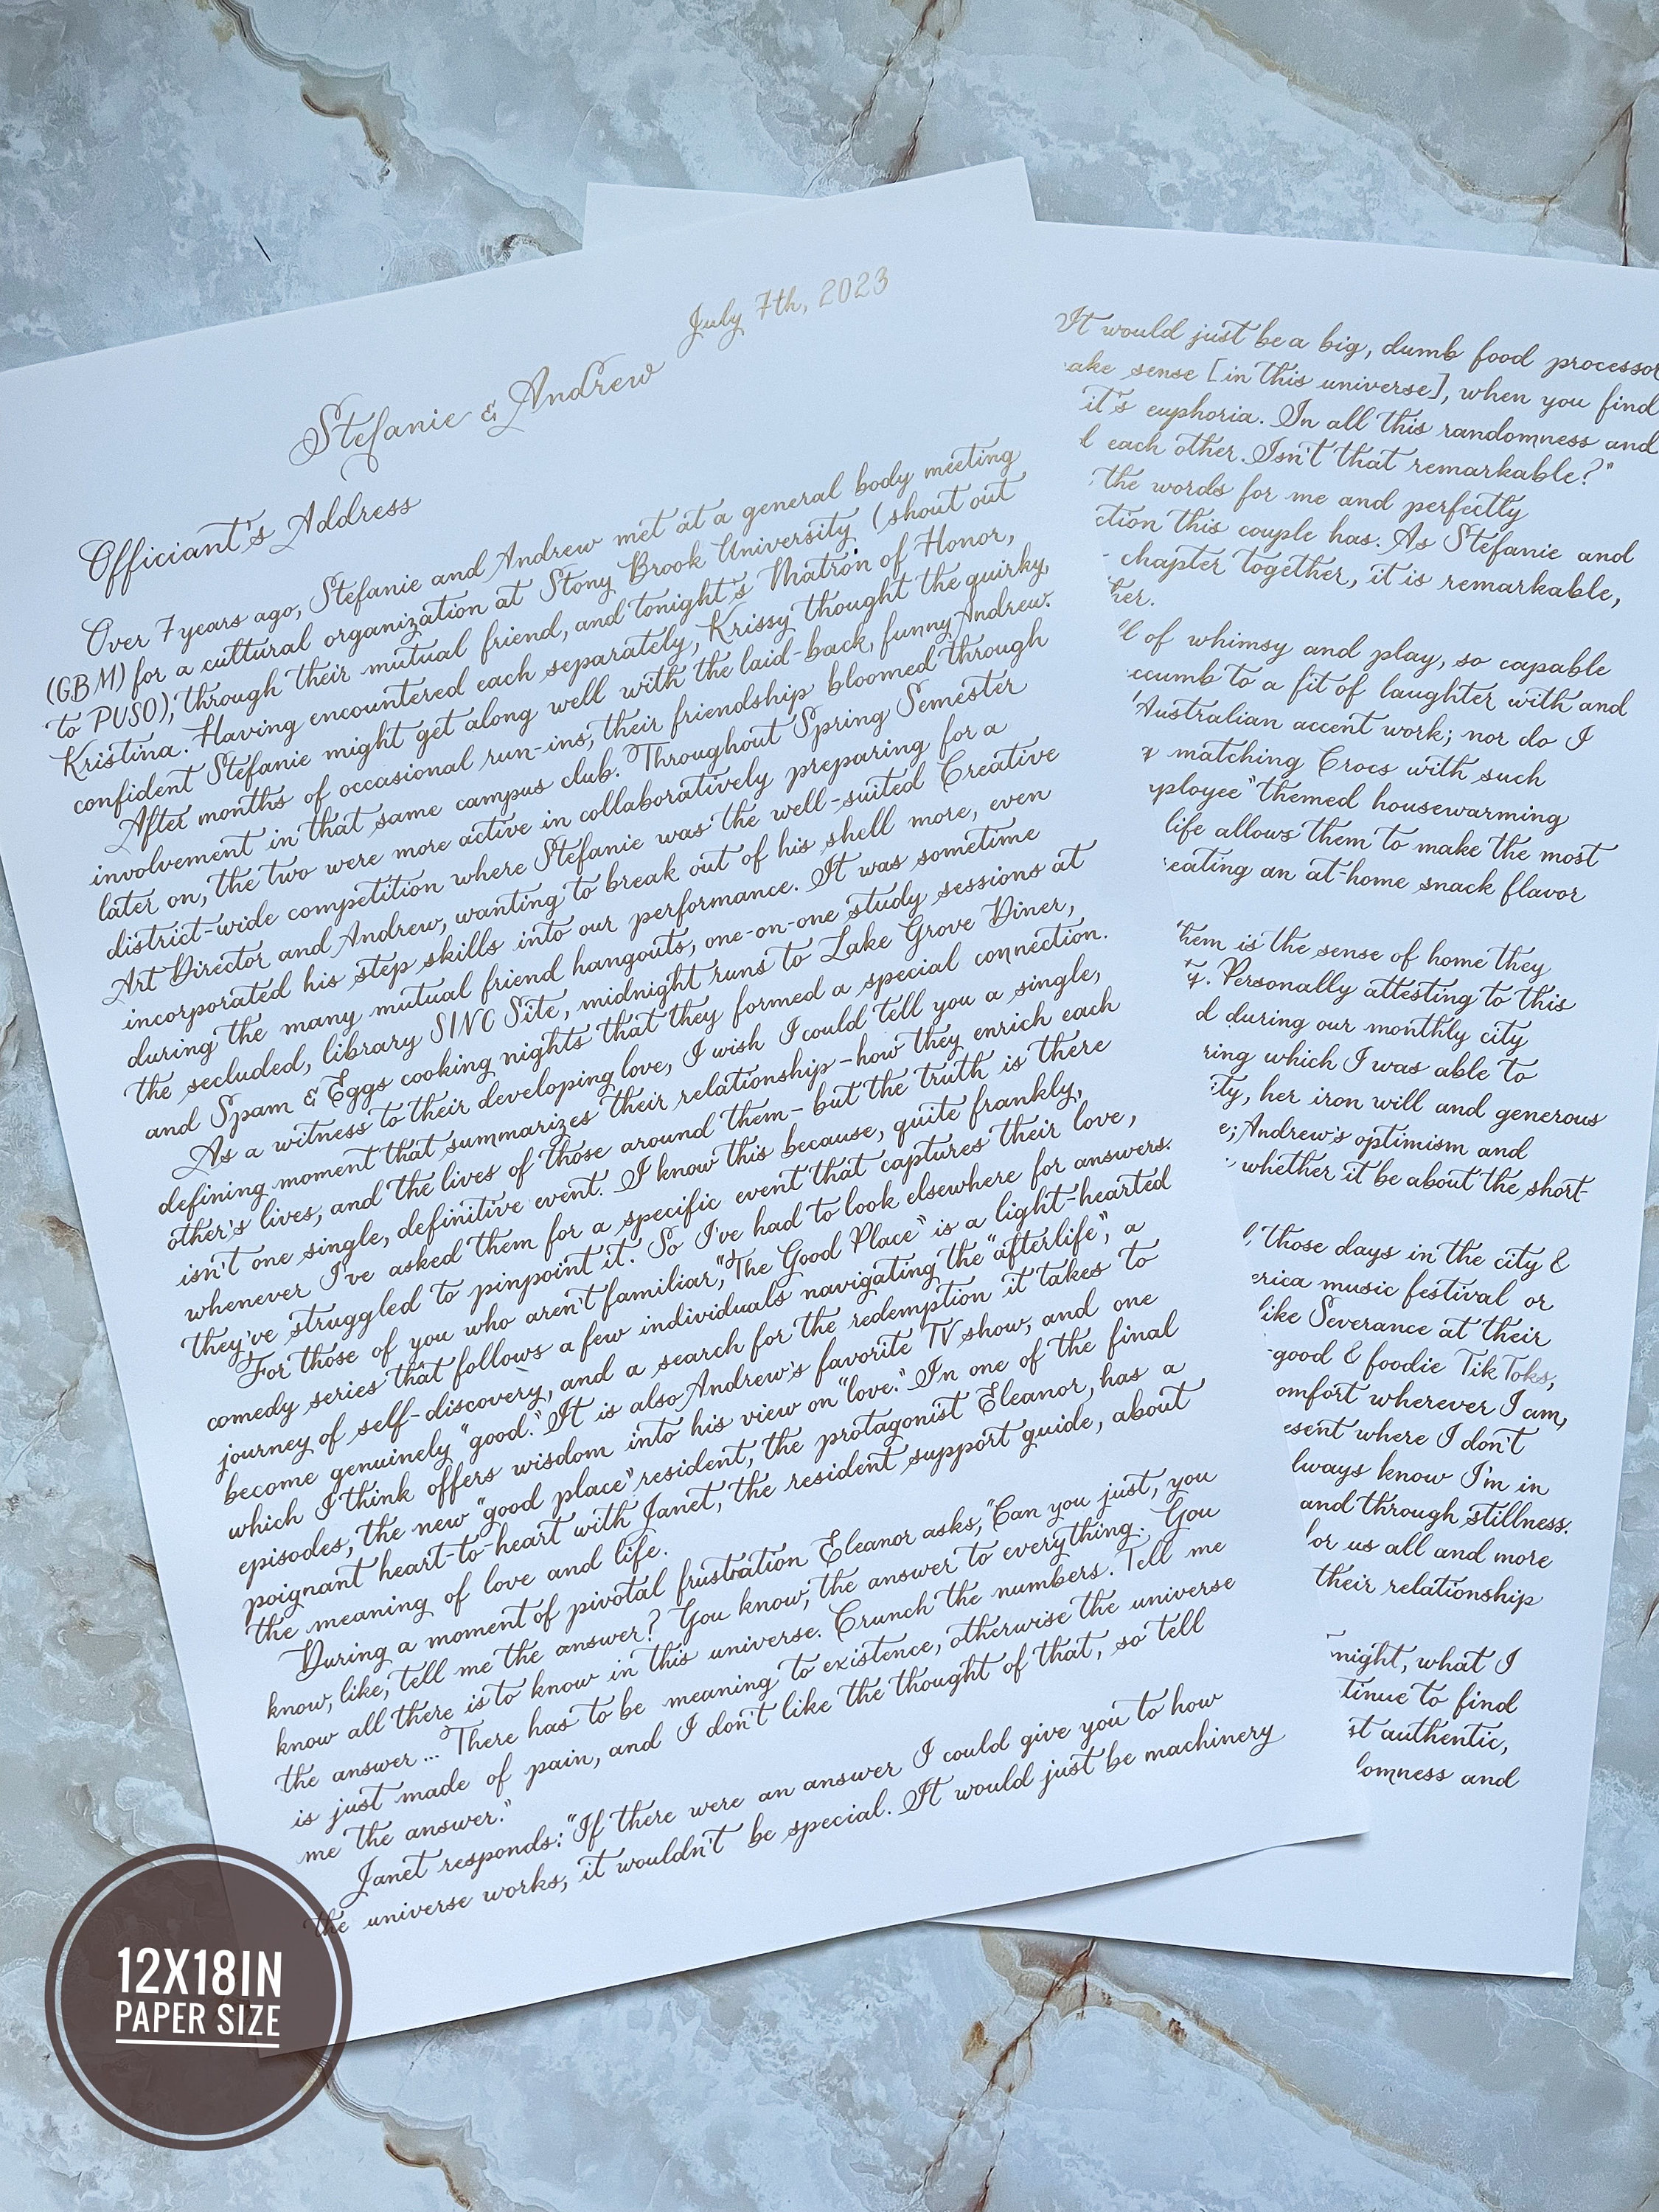 July 7th, 2023
Stefanie & Andrew
Officiant's Address
Over 7 years ago, Stefanie and Andrew met at a general body meeting
(GBM) for a cultural organization at Stony Brook University (shout out
to PUSO), through their mutual friend, and tonight's Matron of Honor,
Kristina. Having encountered each separately, Krissy thought the quirky,
confident Stefanie might get along well with the laid-back, funny Andrew.
After months of occasional run-ins, their friendship bloomed through
involvement in that same campus club. Throughout Spring Semester
later on, the two were more active in collaboratively preparing for a
district-wide competition where Stefanie was the well-suited Creative
Art Director and Andrew, wanting to break out of his shell more, even
incorporated his step skills into our performance. It was sometime
during the many mutual friend hangouts, one-on-one study sessions at
the secluded, library SINC Site, midnight runs to Lake Grove Diner,
and Spam & Eggs cooking nights that they formed a special connection.
As a witness to their developing love, I wish I could tell you a single,
defining moment that summarizes their relationship-how they enrich each
other's lives, and the lives of those around them- but the truth is there
isn't one single, definitive event. I know this because, quite frankly,
whenever I've asked them for a specific event that captures their love,
they've struggled to pinpoint it. So I've had to look elsewhere for answers.
For those of you who aren't familiar, "The Good Place" is a light-hearted
comedy series that follows a few individuals navigating the "afterlife", a
journey of self-discovery, and a search for the redemption it takes to
become genuinely "good." It is also Andrew's favorite TV show, and one
which I think offers wisdom into his view on "love." In one of the final
episodes, the new "good place" resident, the protagonist Eleanor, has a
poignant heart-to-heart with Janet, the resident support guide, about
the meaning of love and life.
During a moment of pivotal frustration Eleanor asks, "Can you just, you
know, like, tell me the answer? You know, the answer to everything. You
know all there is to know in this universe. Crunch the numbers. Tell me
the answer... There has to be meaning to existence, otherwise the universe
is just made of pain, and I don't like the thought of that, so tell
me the answer."
Janet responds: "If there were an answer I could give you to how
the universe works, it wouldn't be special. It would just be machinery
It would just be a big, dumb food processor
sense [in this universe], when you find
it's euphoria. In all this randomness and
each other. Isn't that remarkable?"
the words for me and perfectly
this couple has. As Stefanie and
chapter together, it is remarkable,
of whimsy and play, so capable
to a fit of laughter with and
Australian accent work; nor do I
matching Crocs with such
themed housewarming
life allows them to make the most
an at-home snack flavor
is the sense of home they
Personally attesting to this
during our monthly city
which I was able to
her iron will and generous
Andrew's optimism and
whether it be about the short-
those days in the city &
music festival or
like Severance at their
good & foodie TikToks,
wherever I am,
where I don't
know I'm in
and through stillness.
us all and more
their relationship
what I
to find
authentic,
and
12X18IN
PAPER SIZE